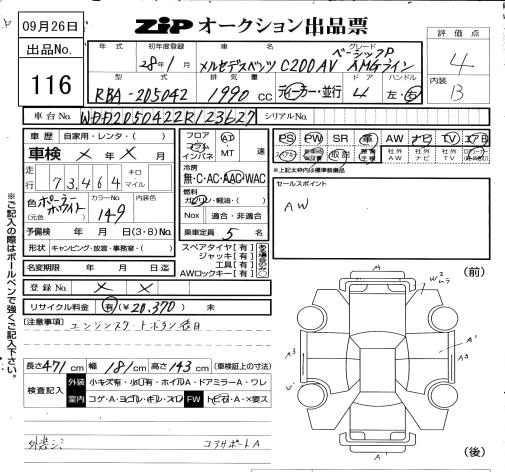 09月26日
出品No.
116
ZIP オークション出品票
評価点
4
内装
B
年式 初年度登録 車名 グレード
28年1月 メルセデスベンツ C200AV ベーシックP AMGライン
型式 排気量 ドア ハンドル
RBA-205042 1990 cc ディーラー・並行 4 左・右
車台No. WDD2050422R123627 シリアルNo.
車歴 自家用・レンタ・( )
車検 × 年 × 月
走行 73,464 キロ マイル
色(元色) ポーラーホワイト カラーNo. 149 内装色
予備検 年 月 日(3・8)No.
形状 キャンピング・放宣・事務室・( )
名変期限 年 月 日迄
登録No. × ×
リサイクル料金 有(¥20,370) 未
フロア コラム インパネ AT MT 速
冷房 無・C・AC・AAC・WAC
燃料 ガソリン・軽油・( )
Nox 適合・非適合
乗車定員 5 名
スペアタイヤ[有]
ジャッキ[有]
工具[有]
AWロックキー[有]
PS PW SR 革 AW ナビ TV エアB
取説 社外AW 社外ナビ 社外TV
※上記太枠内は標準装備品
セールスポイント
AW
[注意事項]
エンジンスタートボタン
長さ 471 cm 幅 181 cm 高さ 143 cm (車検証上の寸法)
検査記入 外装 小キズ有・小凹有・ホイルA・ドアミラーA・ワレ
室内 コゲ・A・ヨゴレ・キレ・スレ FW トビ石・A・×要ス
コアサポートA
※ご記入の際はボールペンで強くご記入下さい。
(前)
A
W2
A1
A3
U1
A
A1
(後)